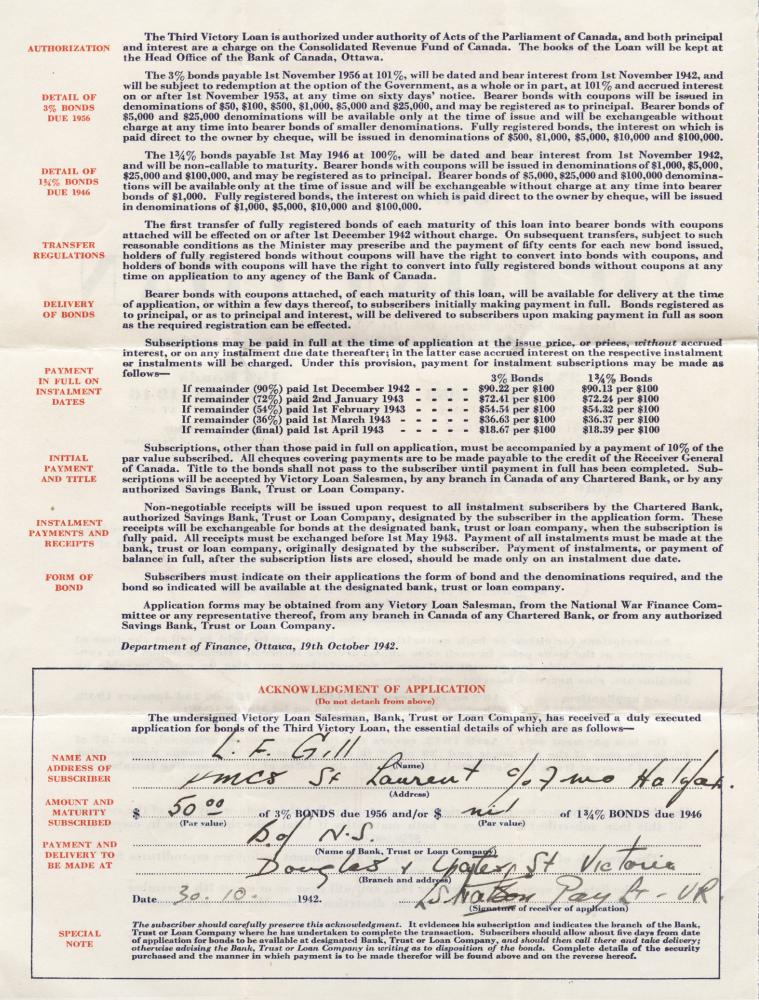 AUTHORIZATION
The Third Victory Loan is authorized under authority of Acts of the Parliament of Canada, and both principal
and interest are a charge on the Consolidated Revenue Fund of Canada. The books of the Loan will be kept at
the Head Office of the Bank of Canada, Ottawa.
DETAIL OF
3% BONDS
DUE 1956
The 3% bonds payable 1st November 1956 at 101%, will be dated and bear interest from 1st November 1942, and
will be subject to redemption at the option of the Government, as a whole or in part, at 101% and accrued interest
on or after 1st November 1953, at any time on sixty days' notice. Bearer bonds with coupons will be issued in
denominations of $50, $100, $500, $1,000, $5,000 and $25,000, and may be registered as to principal. Bearer bonds of
$5,000 and $25,000 denominations will be available only at the time of issue and will be exchangeable without
charge at any time into bearer bonds of smaller denominations. Fully registered bonds, the interest on which is
paid direct to the owner by cheque, will be issued in denominations of $500, $1,000, $5,000, $10,000 and $100,000.
DETAIL OF
1¾% BONDS
DUE 1946
The 1¾% bonds payable 1st May 1946 at 100%, will be dated and bear interest from 1st November 1942,
and will be non-callable to maturity. Bearer bonds with coupons will be issued in denominations of $1,000, $5,000,
$25,000 and $100,000, and may be registered as to principal. Bearer bonds of $5,000, $25,000 and $100,000 denomina-
tions will be available only at the time of issue and will be exchangeable without charge at any time into bearer
bonds of $1,000. Fully registered bonds, the interest on which is paid direct to the owner by cheque, will be issued
in denominations of $1,000, $5,000, $10,000 and $100,000.
TRANSFER
REGULATIONS
The first transfer of fully registered bonds of each maturity of this loan into bearer bonds with coupons
attached will be effected on or after 1st December 1942 without charge. On subsequent transfers, subject to such
reasonable conditions as the Minister may prescribe and the payment of fifty cents for each new bond issued,
holders of fully registered bonds without coupons will have the right to convert into bonds with coupons, and
holders of bonds with coupons will have the right to convert into fully registered bonds without coupons at any
time on application to any agency of the Bank of Canada.
DELIVERY
OF BONDS
Bearer bonds with coupons attached, of each maturity of this loan, will be available for delivery at the time
of application, or within a few days thereof, to subscribers initially making payment in full. Bonds registered as
to principal, or as to principal and interest, will be delivered to subscribers upon making payment in full as soon
as the required registration can be effected.
PAYMENT
IN FULL ON
INSTALMENT
DATES
Subscriptions may be paid in full at the time of application at the issue price, or prices, without accrued
interest, or on any instalment due date thereafter; in the latter case accrued interest on the respective instalment
or instalments will be charged. Under this provision, payment for instalment subscriptions may be made as
follows—
3% Bonds 1¾% Bonds
If remainder (90%) paid 1st December 1942 - - - - $90.22 per $100 $90.13 per $100
If remainder (72%) paid 2nd January 1943 - - - - $72.41 per $100 $72.24 per $100
If remainder (54%) paid 1st February 1943 - - - - $54.54 per $100 $54.32 per $100
If remainder (36%) paid 1st March 1943 - - - - - $36.63 per $100 $36.37 per $100
If remainder (final) paid 1st April 1943 - - - - - $18.67 per $100 $18.39 per $100
INITIAL
PAYMENT
AND TITLE
Subscriptions, other than those paid in full on application, must be accompanied by a payment of 10% of the
par value subscribed. All cheques covering payments are to be made payable to the credit of the Receiver General
of Canada. Title to the bonds shall not pass to the subscriber until payment in full has been completed. Sub-
scriptions will be accepted by Victory Loan Salesmen, by any branch in Canada of any Chartered Bank, or by any
authorized Savings Bank, Trust or Loan Company.
INSTALMENT
PAYMENTS AND
RECEIPTS
Non-negotiable receipts will be issued upon request to all instalment subscribers by the Chartered Bank,
authorized Savings Bank, Trust or Loan Company, designated by the subscriber in the application form. These
receipts will be exchangeable for bonds at the designated bank, trust or loan company, when the subscription is
fully paid. All receipts must be exchanged before 1st May 1943. Payment of all instalments must be made at the
bank, trust or loan company, originally designated by the subscriber. Payment of instalments, or payment of
balance in full, after the subscription lists are closed, should be made only on an instalment due date.
FORM OF
BOND
Subscribers must indicate on their applications the form of bond and the denominations required, and the
bond so indicated will be available at the designated bank, trust or loan company.
Application forms may be obtained from any Victory Loan Salesman, from the National War Finance Com-
mittee or any representative thereof, from any branch in Canada of any Chartered Bank, or from any authorized
Savings Bank, Trust or Loan Company.
Department of Finance, Ottawa, 19th October 1942.
ACKNOWLEDGMENT OF APPLICATION
(Do not detach from above)
The undersigned Victory Loan Salesman, Bank, Trust or Loan Company, has received a duly executed
application for bonds of the Third Victory Loan, the essential details of which are as follows—
NAME AND
ADDRESS OF
SUBSCRIBER
L. F. Gill
(Name)
HMCS St Laurent c/o Fmo Halifax.
(Address)
AMOUNT AND
MATURITY
SUBSCRIBED
$ 50 00 of 3% BONDS due 1956 and/or $ nil of 1¾% BONDS due 1946
(Par value) (Par value)
PAYMENT AND
DELIVERY TO
BE MADE AT
B. of N.S.
(Name of Bank, Trust or Loan Company)
Douglas & Yates St Victoria
(Branch and address)
Date 30. 10. 1942. Pay Lt - VR
(Signature of receiver of application)
SPECIAL
NOTE
The subscriber should carefully preserve this acknowledgment. It evidences his subscription and indicates the branch of the Bank,
Trust or Loan Company where he has undertaken to complete the transaction. Subscribers should allow about five days from date
of application for bonds to be available at designated Bank, Trust or Loan Company, and should then call there and take delivery;
otherwise advising the Bank, Trust or Loan Company in writing as to disposition of the bonds. Complete details of the security
purchased and the manner in which payment is to be made therefor will be found above and on the reverse hereof.